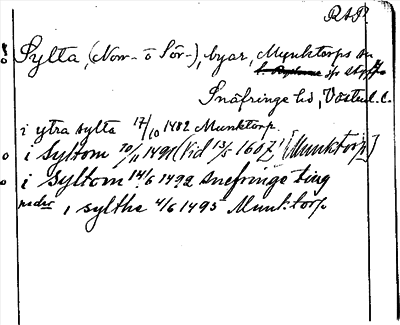 R A P.
Sylta, (Norr- o Sör-), byar, Munktorps sn
Snäfringe hd, Västm. l.
i ytra sylta 17/10 1482 Munktorp.
i Syltom 10/11 1491 (Vid 13/5 1607) [Munktorp]
i Syltom 14/6 1492 snefringe ting
i syltha 4/6 1495 Munktorp